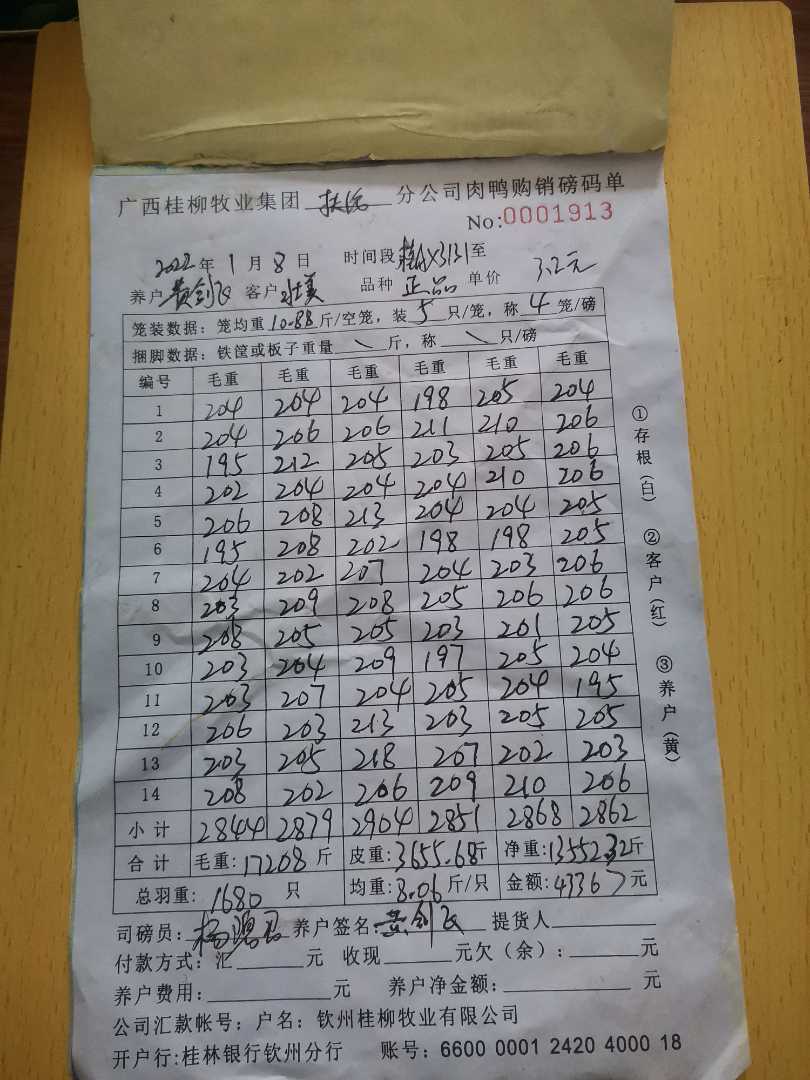 广西桂柳牧业集团 扶绥 分公司肉鸭购销磅码单
No:0001913
2022年 1 月 8 日 时间段 桂AX3131至
养户 黄剑飞 客户 壮美 品种 正品 单价 3.2元
笼装数据：笼均重10.88斤/空笼，装 5 只/笼，称 4 笼/磅
捆脚数据：铁筐或板子重量 \ 斤，称 \ 只/磅
编号 毛重 毛重 毛重 毛重 毛重 毛重
1 204 204 204 198 205 204
2 204 206 206 211 210 206
3 195 212 205 203 205 206
4 202 204 204 204 210 206
5 206 208 213 204 204 205
6 195 208 202 198 198 205
7 204 202 207 204 203 206
8 203 209 208 205 206 206
9 208 205 205 203 201 205
10 203 204 209 197 205 204
11 203 207 204 205 204 195
12 206 203 213 203 205 205
13 203 205 218 207 202 203
14 208 202 206 209 210 206
小计 2844 2879 2904 2851 2868 2862
合计 毛重：17208斤 皮重：3655.68斤 净重：13552.32斤
总羽重：1680 只 均重：8.06斤/只 金额：43367元
司磅员：杨 养户签名：黄剑飞 提货人
付款方式：汇 元 收现 元欠（余）： 元
养户费用： 元 养户净金额： 元
公司汇款帐号：户名：钦州桂柳牧业有限公司
开户行：桂林银行钦州分行 账号：6600 0001 2420 4000 18
①存根（白） ②客户（红） ③养户（黄）